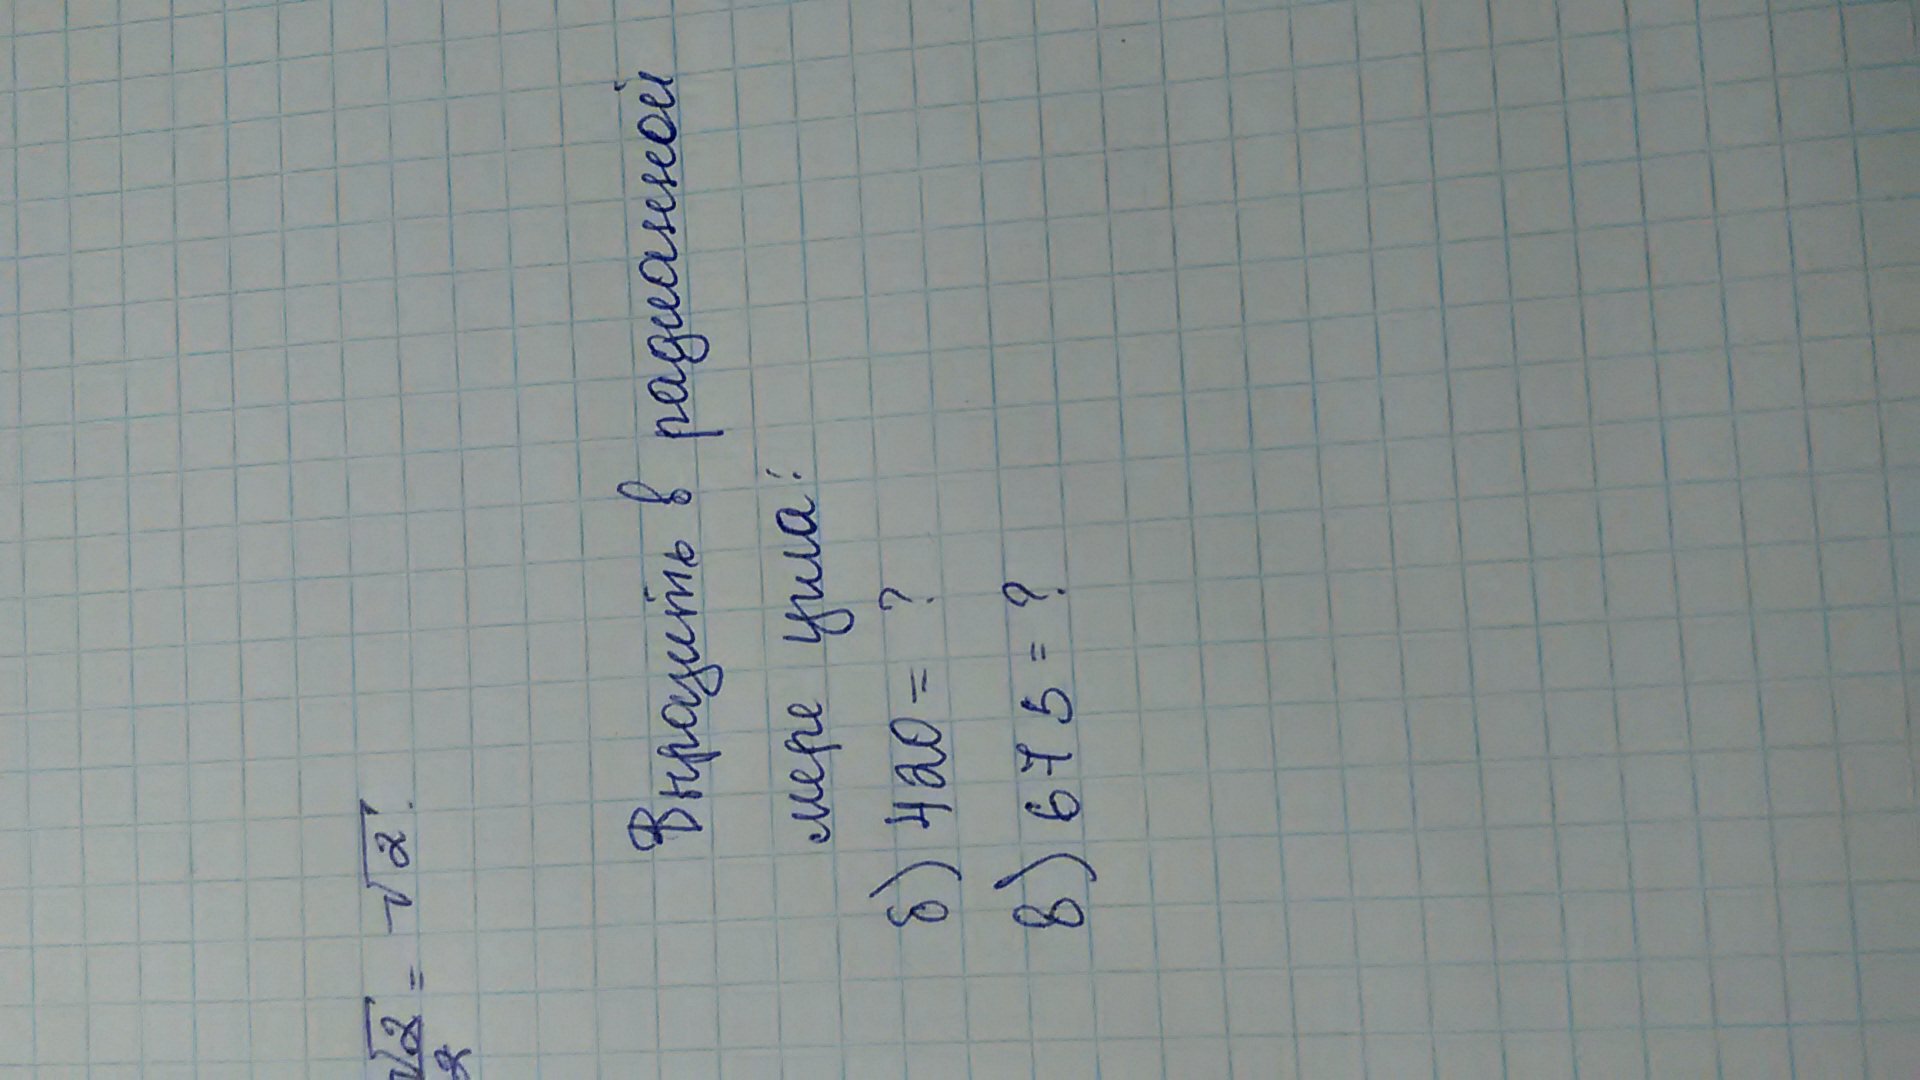 √2/2 = √2.
Выразить в радианной
мере угла:
б) 420 = ?
в) 675 = ?